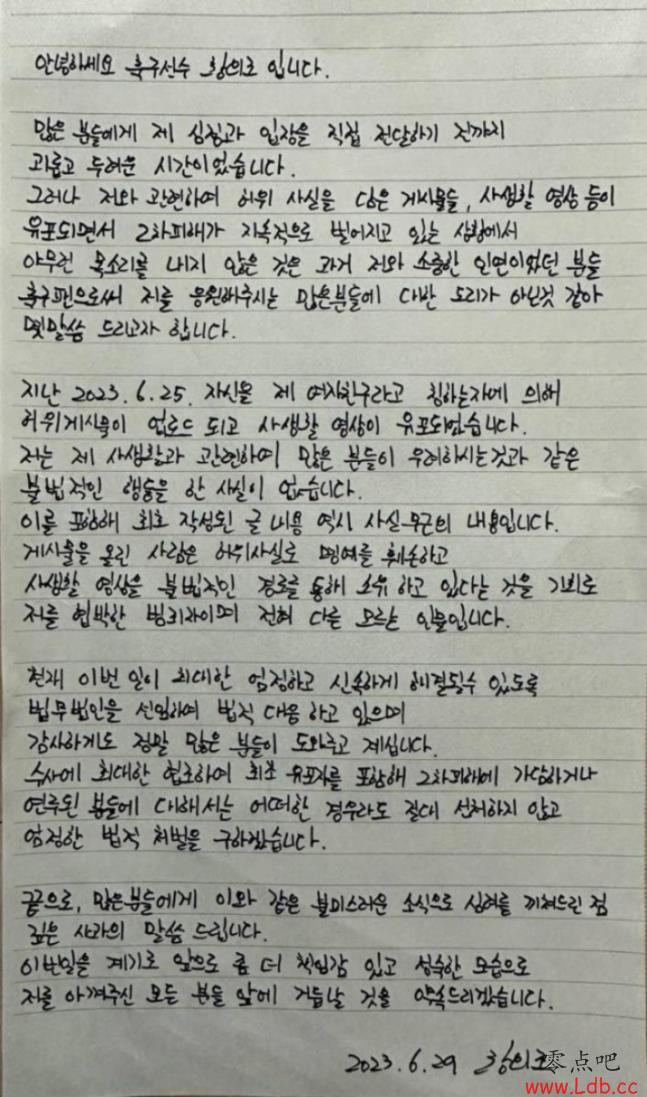 안녕하세요 축구선수 황의조 입니다.
많은 분들에게 제 심정과 입장을 직접 전달하기 전까지
괴롭고 두려운 시간이었습니다.
그러나 저와 관련하여 허위 사실을 담은 게시물들, 사생활 영상 등이
유포되면서 2차피해가 지속적으로 벌어지고 있는 상황에서
아무런 목소리를 내지 않은 것은 과거 저와 소중한 인연이었던 분들
축구팬으로써 저를 응원해주시는 많은분들에 대한 도리가 아닌것 같아
몇말씀 드리고자 합니다.
지난 2023.6.25. 자신을 제 여자친구라고 칭하는자에 의해
허위게시물이 업로드 되고 사생활 영상이 유포되었습니다.
저는 제 사생활과 관련하여 많은 분들이 우려하시는것과 같은
불법적인 행동을 한 사실이 없습니다.
이를 포함해 최초 작성된 글 내용 역시 사실무근의 내용입니다.
게시물을 올린 사람은 허위사실로 명예를 훼손하고
사생활 영상을 불법적인 경로를 통해 소유 하고 있다는 것을 기회로
저를 협박한 범죄자이며 전혀 다른 모르는 인물입니다.
현재 이번 일이 최대한 엄정하고 신속하게 해결될수 있도록
법무법인을 선임하여 법적 대응 하고 있으며
감사하게도 정말 많은 분들이 도와주고 계십니다.
수사에 최대한 협조하여 최초 유포자를 포함해 2차피해에 가담하거나
연루된 분들에 대해서는 어떠한 경우라도 절대 선처하지 않고
엄정한 법적 처벌을 구하겠습니다.
끝으로, 많은분들에게 이와 같은 불미스러운 소식으로 심려를 끼쳐드린 점
깊은 사과의 말씀 드립니다.
이번일을 계기로 앞으로 좀 더 책임감 있고 성숙한 모습으로
저를 아껴주신 모든 분들 앞에 거듭날 것을 약속드리겠습니다.
2023.6.29 황의조
零点吧
www.Ldb.cc